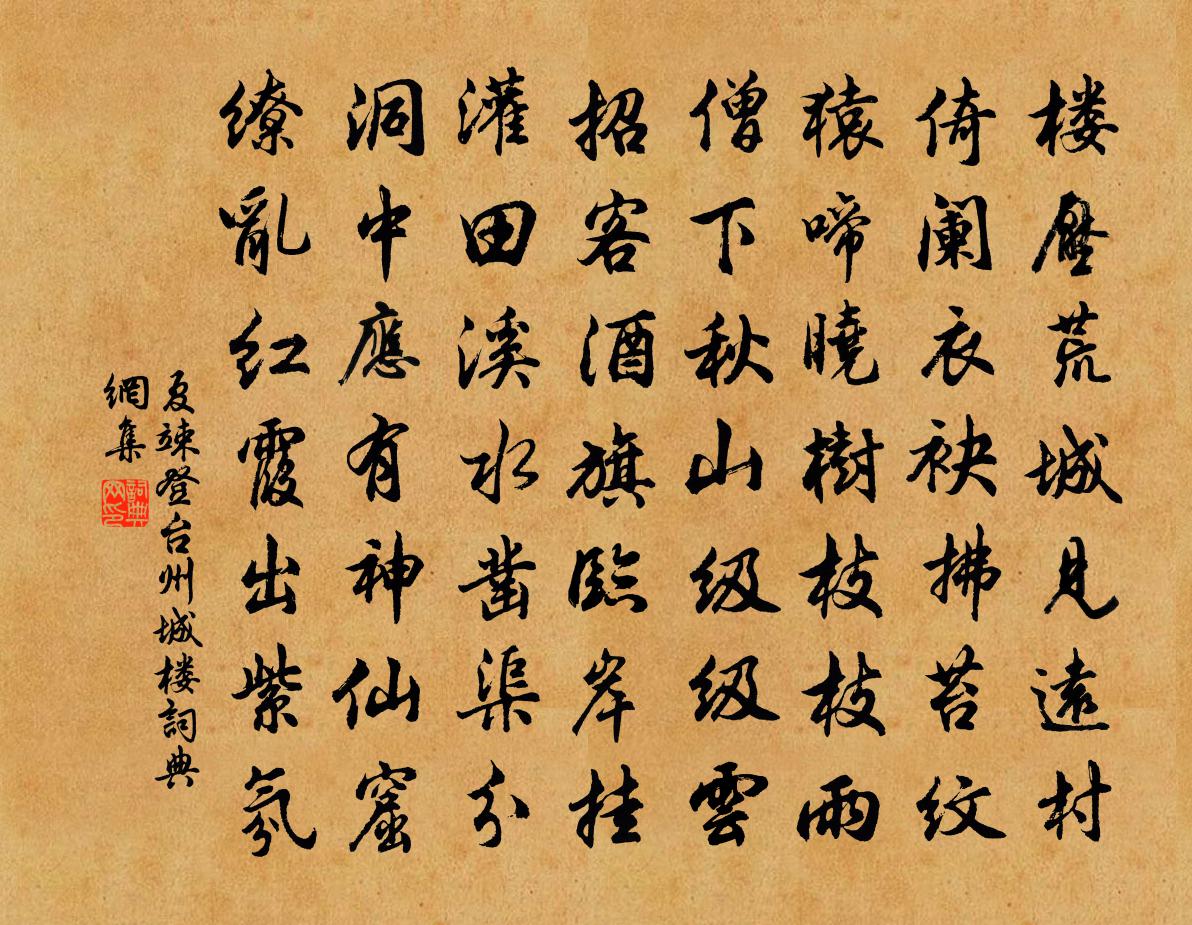 楼壓荒城見遠村
倚阑衣袂拂苔紋
猿啼曉樹枝枝雨
僧下秋山级级雲
招客酒旗臨岸挂
灌田溪水凿渠分
洞中應有神仙窟
缭亂红霞出紫氛
夏竦登台州城楼詞典
網集
詞典
网印